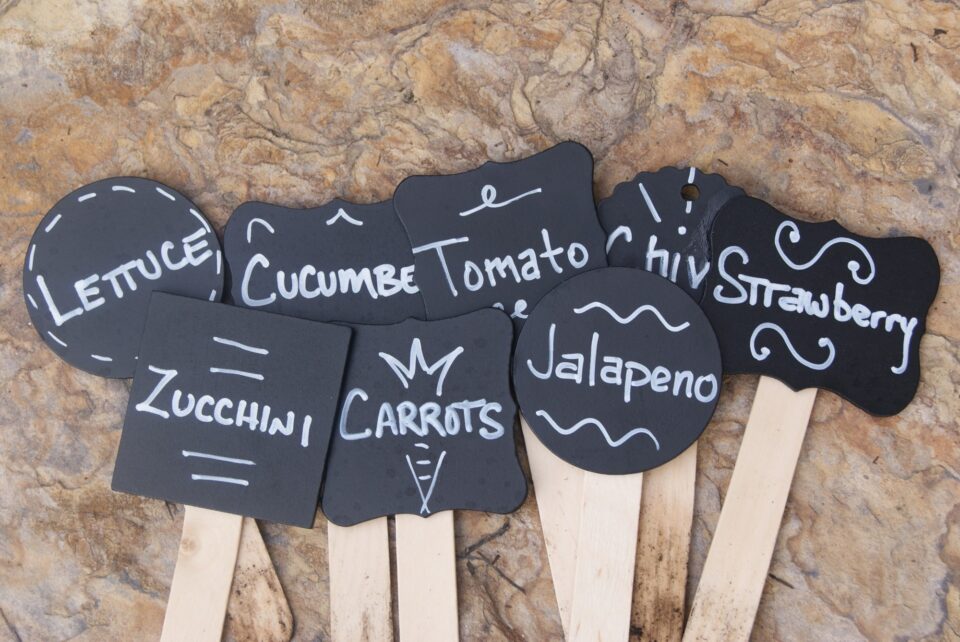 LETTUCE
CUCUMBE
Tomato
Chiv
Strawberry
ZUCCHINI
CARROTS
Jalapeno